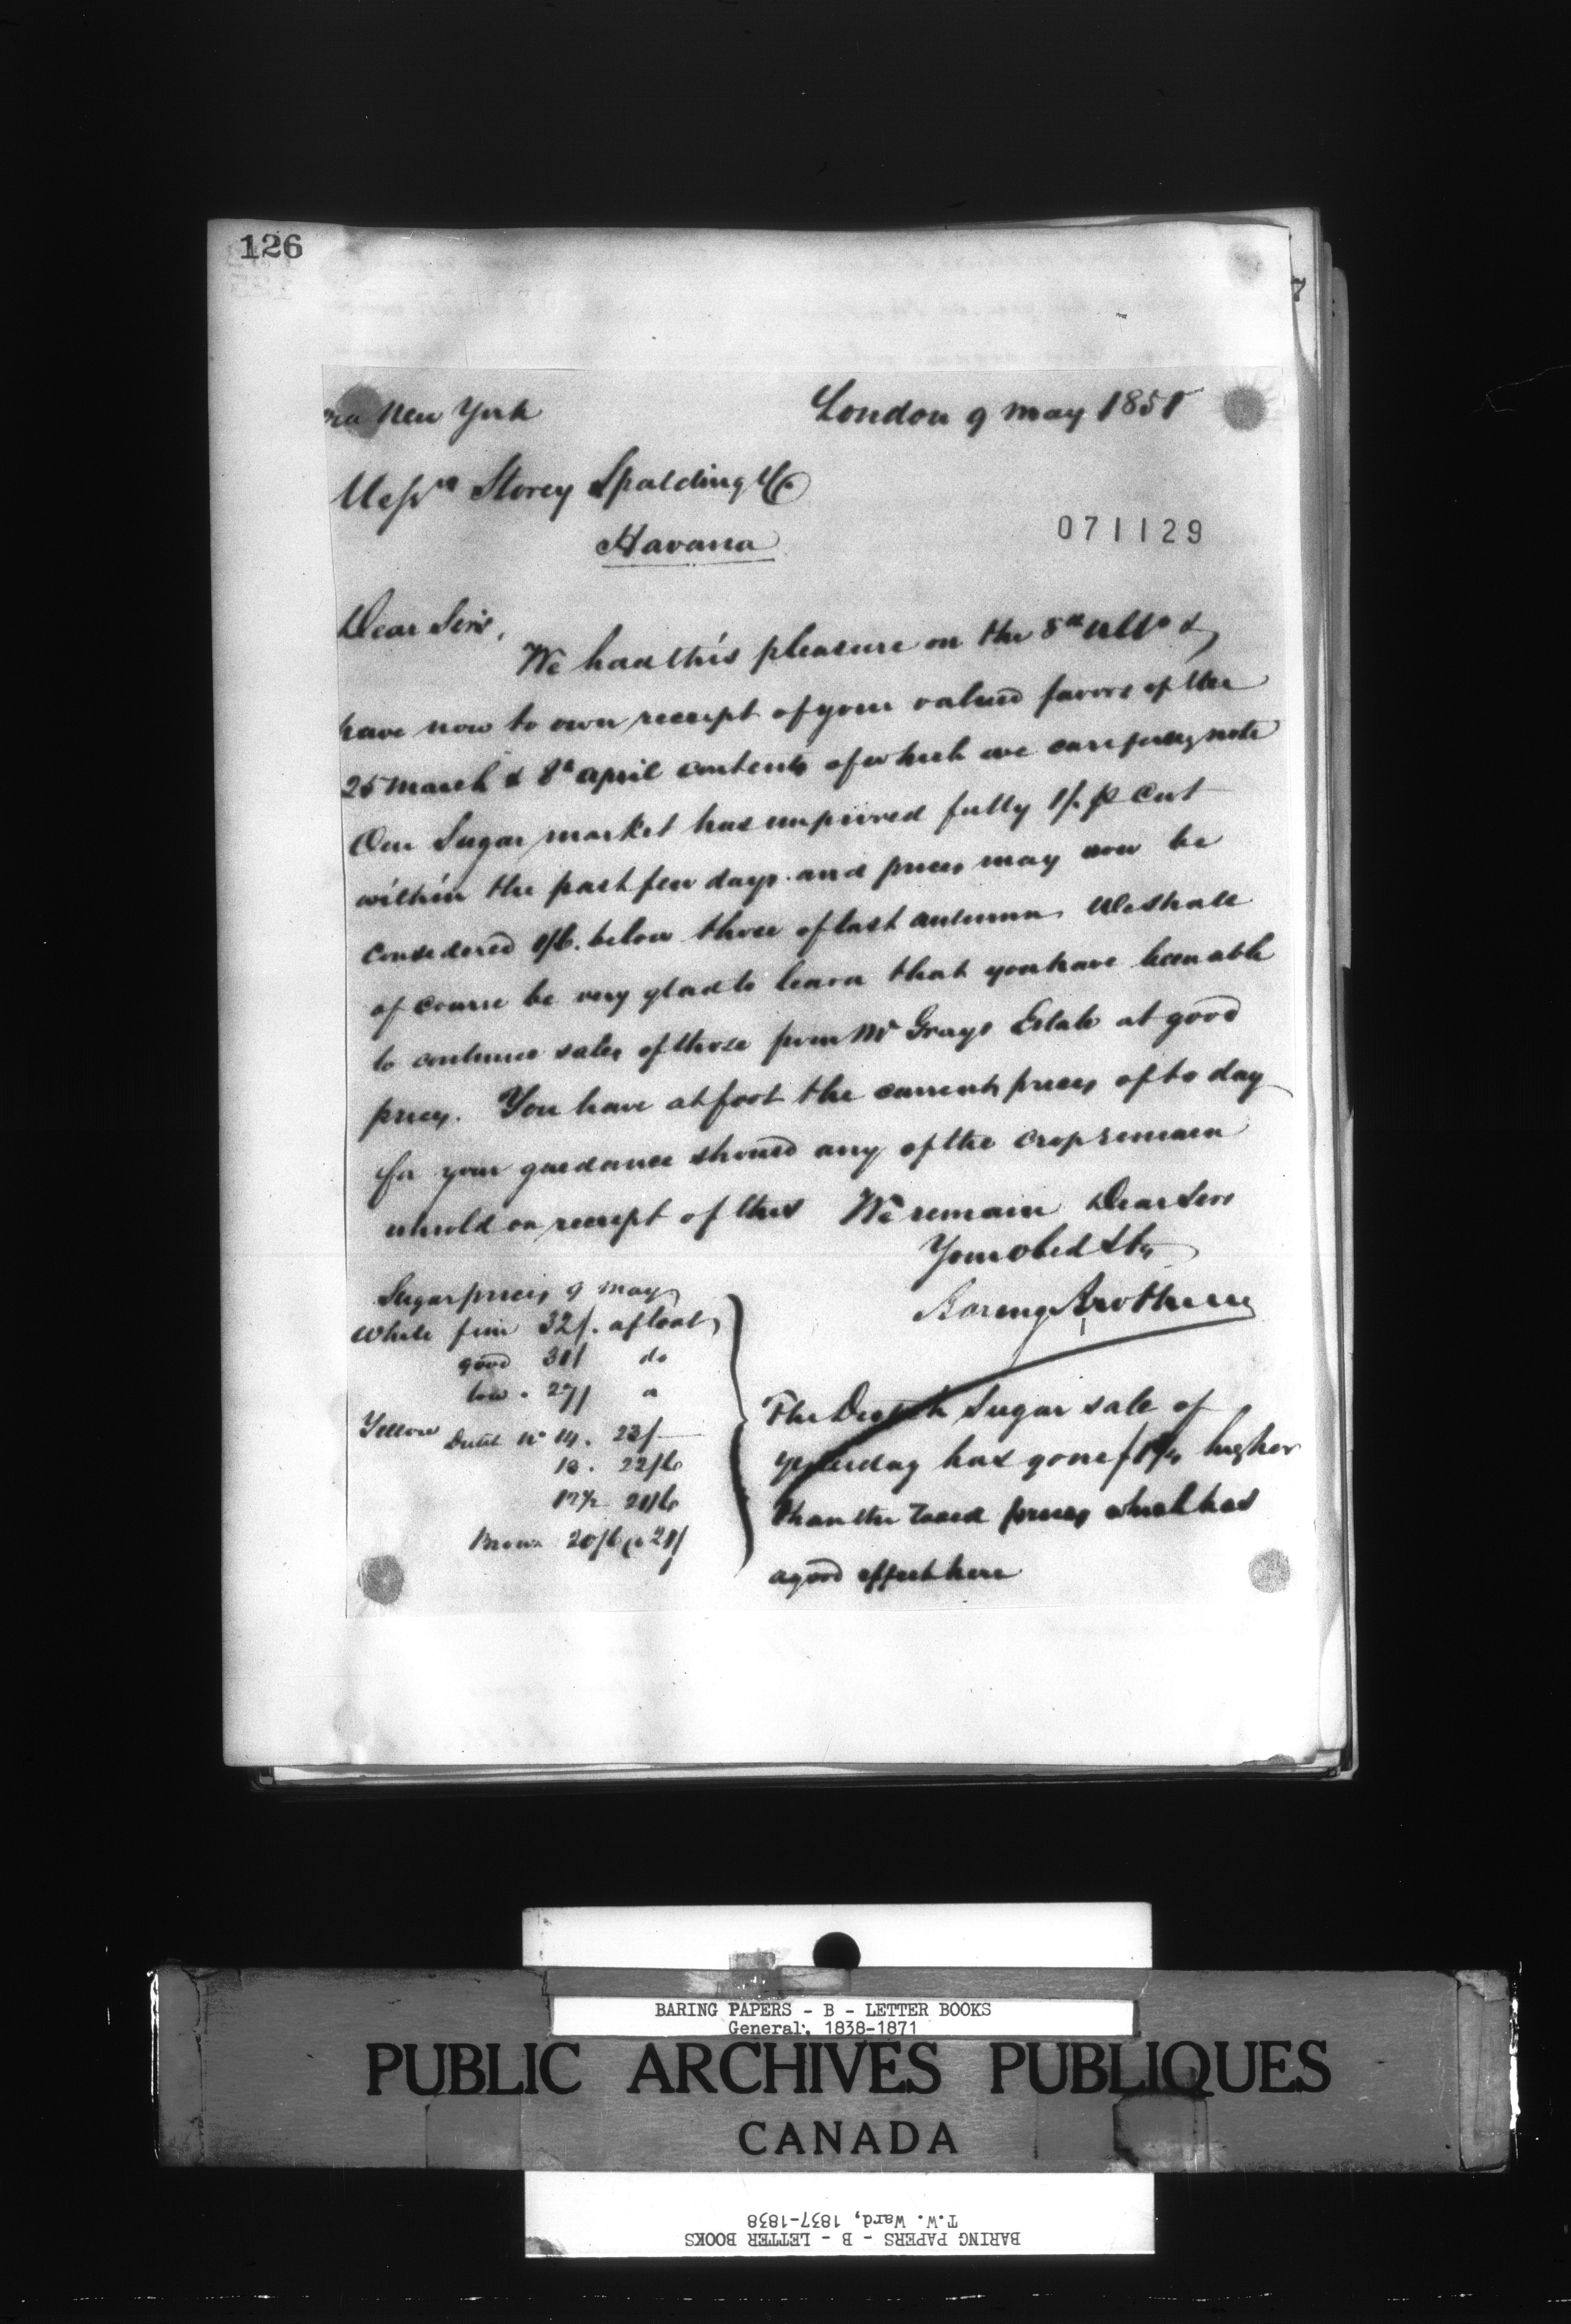 126
via New York London 9 May 1851
Messrs Storey Spalding & Co
Havana
071129
Dear Sirs,
We had this pleasure on the 8th ulto &
have now to own receipt of your valued favors of the
25 March & 8th April contents of which we carefully note
Our Sugar market has improved fully 1/. p Cwt
within the past few days and prices may now be
considered 1/6. below those of last autumn. We shall
of course be very glad to learn that you have been able
to continue sales of those from Mr Grays Estate at good
prices. You have at foot the current prices of to day
for your guidance should any of the crop remain
unsold on receipt of this We remain Dear Sirs
Your obed Sts
Baring Brothers
Sugar prices 9 May
White fine 32/. afloat
good 30/ do
low . 27/
Yellow Dutch No 14. 23/-
13. 22/6
12½ 21/6
Brown 20/6 @ 21/
The Dutch Sugar sale of
yesterday has gone higher
than the taxed prices which has
a good effect here
BARING PAPERS - B - LETTER BOOKS
General, 1838-1871
PUBLIC ARCHIVES PUBLIQUES
CANADA
BARING PAPERS - B - LETTER BOOKS
T.W. Ward, 1837-1838